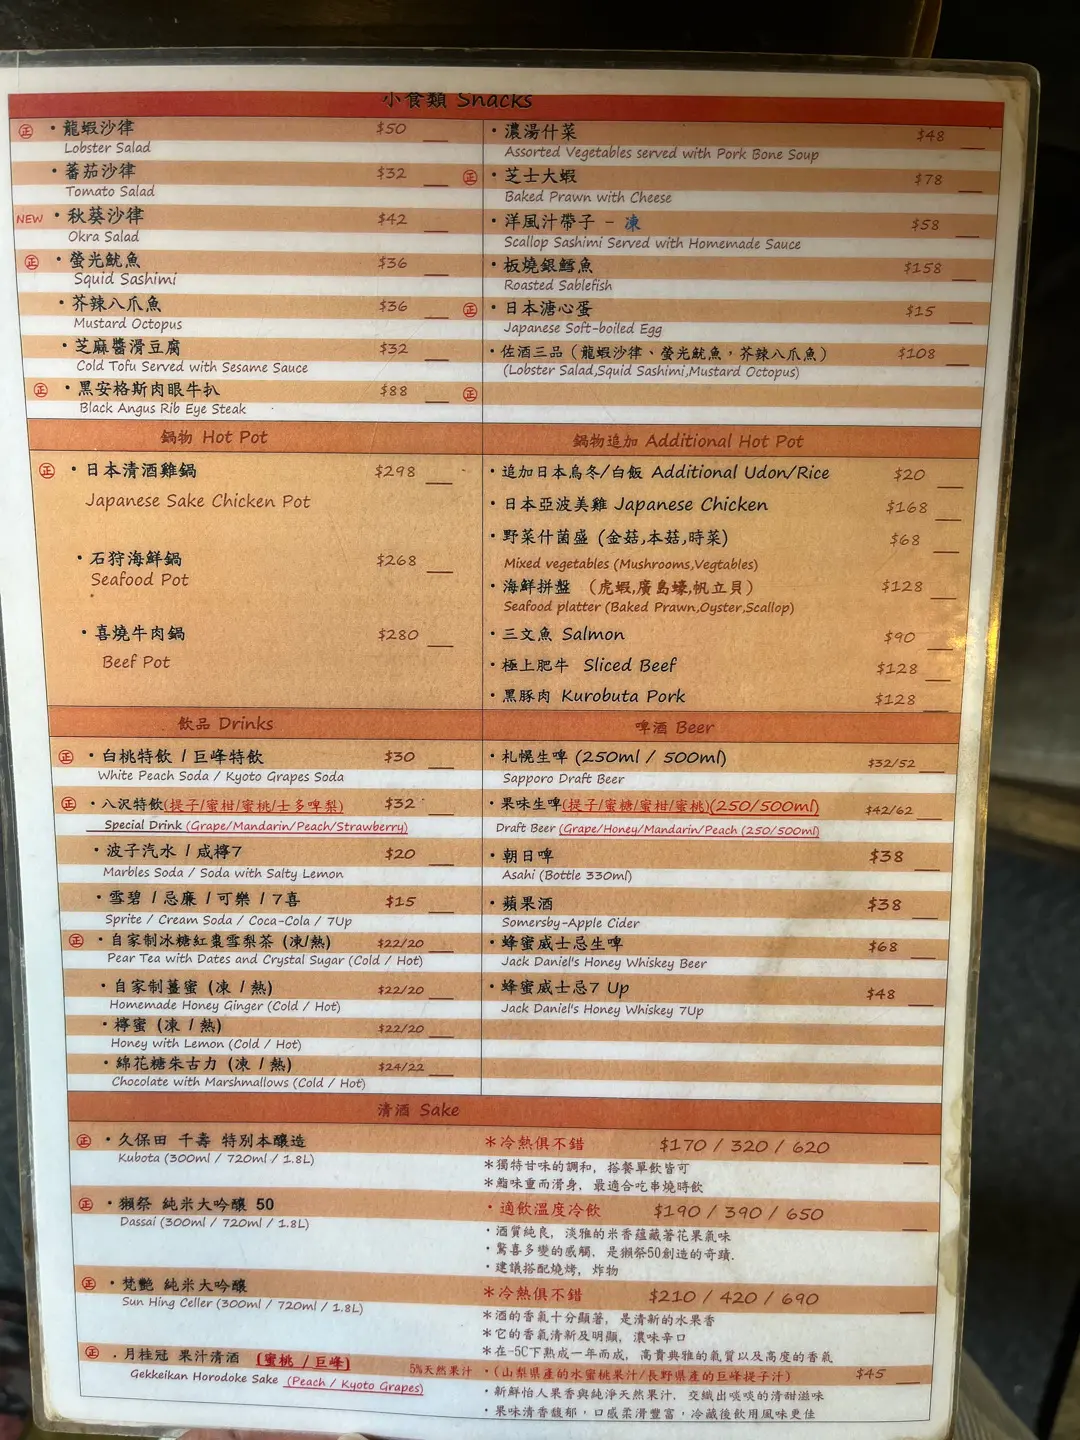 小食類 Snacks
正 ・龍蝦沙律 $50
Lobster Salad
・蕃茄沙律 $32
Tomato Salad
NEW ・秋葵沙律 $42
Okra Salad
正 ・螢光魷魚 $36
Squid Sashimi
・芥辣八爪魚 $36
Mustard Octopus
・芝麻醬滑豆腐 $32
Cold Tofu Served with Sesame Sauce
正 ・黑安格斯肉眼牛扒 $88
Black Angus Rib Eye Steak
・濃湯什菜 $48
Assorted Vegetables served with Pork Bone Soup
正 ・芝士大蝦 $78
Baked Prawn with Cheese
・洋風汁帶子 - 凍 $58
Scallop Sashimi Served with Homemade Sauce
・板燒銀鱈魚 $158
Roasted Sablefish
正 ・日本溏心蛋 $15
Japanese Soft-boiled Egg
・佐酒三品（龍蝦沙律、螢光魷魚，芥辣八爪魚） $108
(Lobster Salad,Squid Sashimi,Mustard Octopus)
正
鍋物 Hot Pot
正 ・日本清酒雞鍋 $298
Japanese Sake Chicken Pot
・石狩海鮮鍋 $268
Seafood Pot
・喜燒牛肉鍋 $280
Beef Pot
鍋物追加 Additional Hot Pot
・追加日本烏冬/白飯 Additional Udon/Rice $20
・日本亞波美雞 Japanese Chicken $168
・野菜什菌盛 (金菇,本菇,時菜) $68
Mixed vegetables (Mushrooms,Vegtables)
・海鮮拼盤 （虎蝦,廣島蠔,帆立貝） $128
Seafood platter (Baked Prawn,Oyster,Scallop)
・三文魚 Salmon $90
・極上肥牛 Sliced Beef $128
・黑豚肉 Kurobuta Pork $128
飲品 Drinks
正 ・白桃特飲 / 巨峰特飲 $30
White Peach Soda / Kyoto Grapes Soda
正 ・八沢特飲(提子/蜜柑/蜜桃/士多啤梨) $32
Special Drink (Grape/Mandarin/Peach/Strawberry)
・波子汽水 / 咸檸7 $20
Marbles Soda / Soda with Salty Lemon
・雪碧 / 忌廉 / 可樂 / 7喜 $15
Sprite / Cream Soda / Coca-Cola / 7Up
正 ・自家制冰糖紅棗雪梨茶 (凍/熱) $22/20
Pear Tea with Dates and Crystal Sugar (Cold / Hot)
・自家制薑蜜 (凍 / 熱) $22/20
Homemade Honey Ginger (Cold / Hot)
・檸蜜 (凍 / 熱) $22/20
Honey with Lemon (Cold / Hot)
・綿花糖朱古力 (凍 / 熱) $24/22
Chocolate with Marshmallows (Cold / Hot)
啤酒 Beer
・札幌生啤 (250ml / 500ml) $32/52
Sapporo Draft Beer
・果味生啤(提子/蜜糖/蜜柑/蜜桃)(250/500ml) $42/62
Draft Beer (Grape/Honey/Mandarin/Peach (250/500ml)
・朝日啤 $38
Asahi (Bottle 330ml)
・蘋果酒 $38
Somersby-Apple Cider
・蜂蜜威士忌生啤 $68
Jack Daniel's Honey Whiskey Beer
・蜂蜜威士忌7 Up $48
Jack Daniel's Honey Whiskey 7Up
清酒 Sake
正 ・久保田 千壽 特別本釀造 *冷熱俱不錯 $170 / 320 / 620
Kubota (300ml / 720ml / 1.8L)
*獨特甘味的調和, 搭餐單飲皆可
味重而滑身, 最適合吃串燒時飲
正 ・獺祭 純米大吟釀 50 ・適飲溫度冷飲 $190 / 390 / 650
Dassai (300ml / 720ml / 1.8L)
・酒質純良, 淡雅的米香蘊藏著花果氣味
・驚喜多變的感觸, 是獺祭50創造的奇蹟.
・建議搭配燒烤, 炸物
正 ・梵艷 純米大吟釀 *冷熱俱不錯 $210 / 420 / 690
Sun Hing Celler (300ml / 720ml / 1.8L)
*酒的香氣十分顯著, 是清新的水果香
*它的香氣清新及明顯, 濃味辛口
*在-5C下熟成一年而成, 高貴典雅的氣質以及高度的香氣
正 ・月桂冠 果汁清酒 (蜜桃 / 巨峰) 5%天然果汁 ・(山梨県產的水蜜桃果汁/長野県產的巨峰提子汁) $45
Gekkeikan Horodoke Sake (Peach / Kyoto Grapes)
・新鮮怡人果香與純淨天然果汁, 交織出啖啖的清甜滋味
・果味清香馥郁，口感柔滑豐富，冷藏後飲用風味更佳